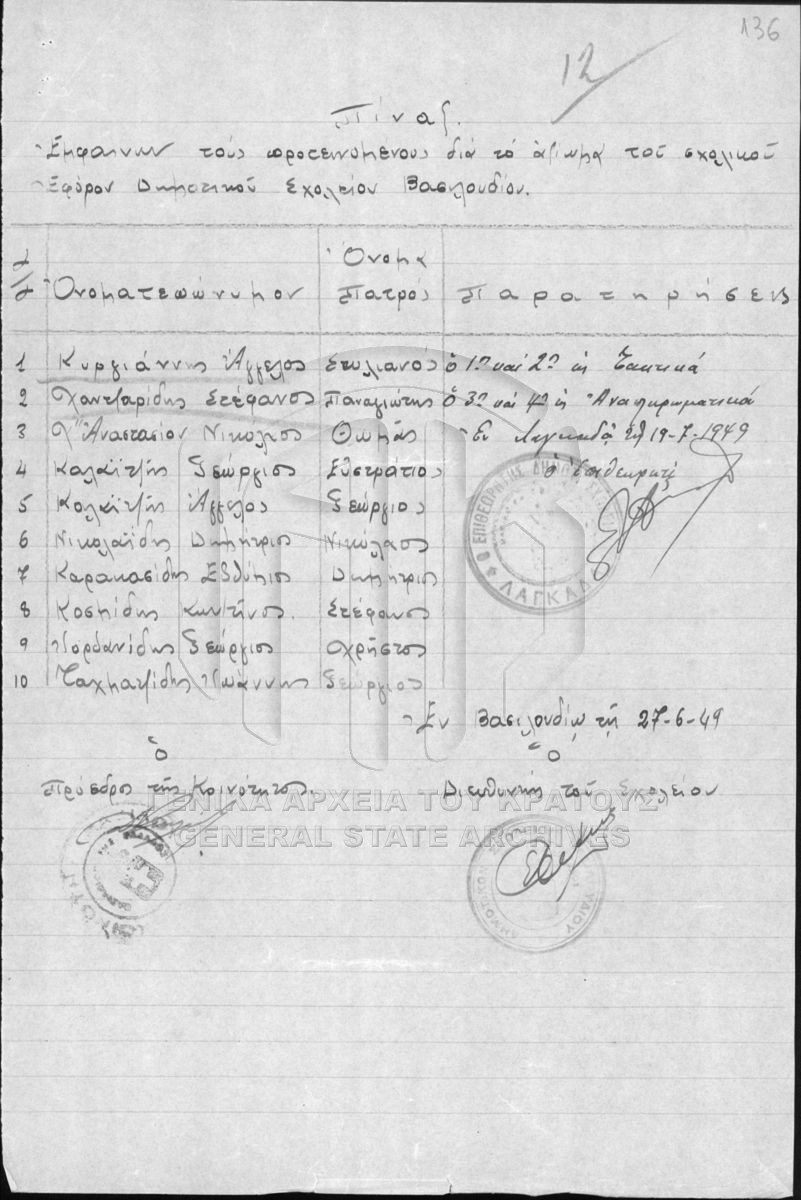 136
12
Πίναξ.
Ἐμφαίνων τούς προτεινομένους διά τό ἀξίωμα τοῦ σχολικοῦ
Ἐφόρου Δημοτικοῦ Σχολείου Βασιλουδίου.
Ὄνομα
α/α Ὀνοματεπώνυμον Πατρός Παρατηρήσεις
1 Κυργιάννης Ἄγγελος Στυλιανός ὁ 1ος καί 2ος ὡς Τακτικά
2 Χαντζαρίδης Στέφανος Παναγιώτης ὁ 3ος καί 4ος ὡς Ἀναπληρωματικά
3 Ἀναστασίου Νικόλαος Θωμᾶς Ἐν Λαγκαδᾷ τῇ 19-7-1949
4 Καλαϊτζῆς Γεώργιος Εὐστράτιος ὁ Ἐπιθεωρητής
5 Καλαϊτζῆς Ἄγγελος Γεώργιος
6 Νικολαΐδης Δημήτριος Νικόλαος
7 Καρακασίδης Εὐθύμιος Δημήτριος
8 Κοσμίδης Κων/τῖνος Στέφανος
9 Ἰορδανίδης Γεώργιος Χρῆστος
10 Ταχματζίδης Ἰωάννης Γεώργιος
ΕΠΙΘΕΩΡΗΣΙΣ ΔΗΜΟΤ
ΛΑΓΚΑΔΑ
Ἐν Βασιλουδίῳ τῇ 27-6-49
Ὁ Ὁ
Πρόεδρος τῆς Κοινότητος. Διευθυντής τοῦ Σχολείου
ΓΕΝΙΚΑ ΑΡΧΕΙΑ ΤΟΥ ΚΡΑΤΟΥΣ
GENERAL STATE ARCHIVES
ΔΗΜΟΤΙΚΟΝ